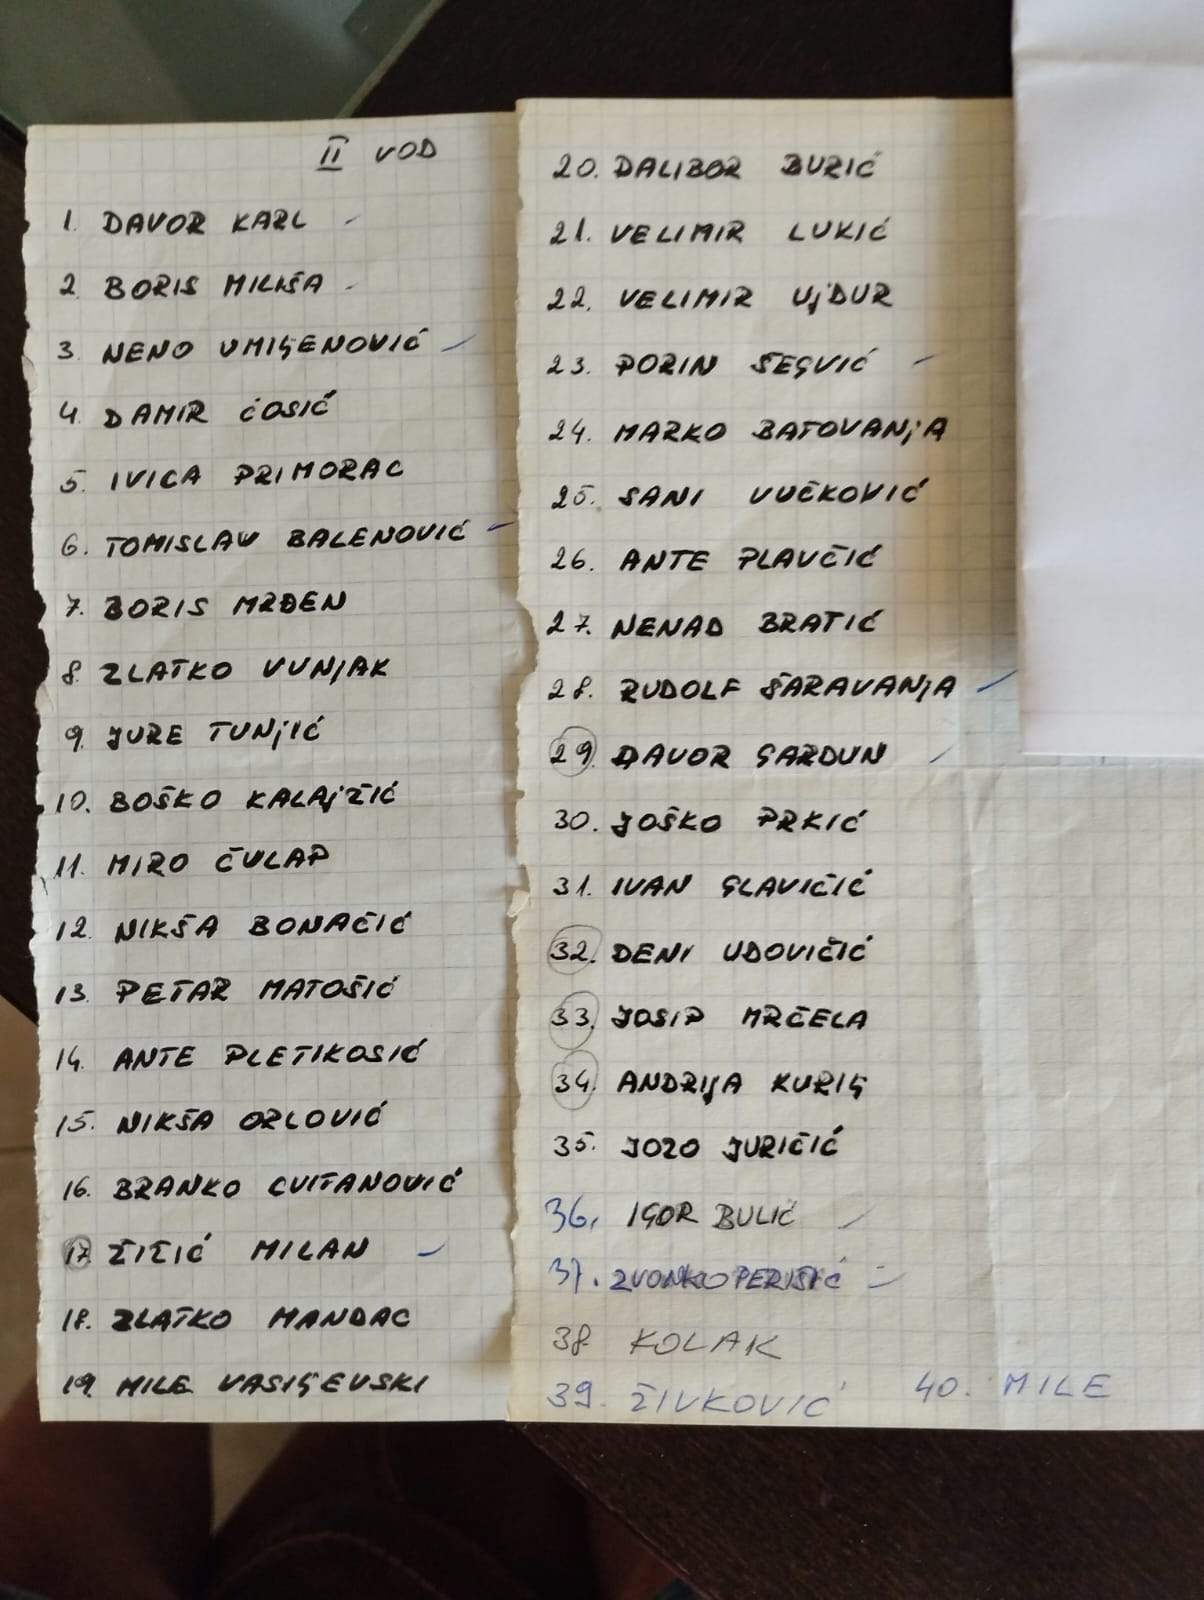 II VOD
1. DAVOR KARL
2. BORIS MILIŠA
3. NENO UMIJENOVIĆ
4. DAMIR ĆOSIĆ
5. IVICA PRIMORAC
6. TOMISLAV BALENOVIĆ
7. BORIS MRĐEN
8. ZLATKO VUNJAK
9. JURE TUNJIĆ
10. BOŠKO KALAJŽIĆ
11. MIRO ČULAP
12. NIKŠA BONAČIĆ
13. PETAR MATOŠIĆ
14. ANTE PLETIKOSIĆ
15. NIKŠA ORLOVIĆ
16. BRANKO CVITANOVIĆ
17. ŽIŽIĆ MILAN
18. ZLATKO MANDAC
19. MILE VASIJEVSKI
20. DALIBOR BURIĆ
21. VELIMIR LUKIĆ
22. VELIMIR UJDUR
23. PORIN ŠEGVIĆ
24. MARKO BATOVANJA
25. SANI VUČKOVIĆ
26. ANTE PLAVČIĆ
27. NENAD BRATIĆ
28. RUDOLF ŠARAVANJA
29. DAVOR GARDUN
30. JOŠKO PRKIĆ
31. IVAN GLAVIČIĆ
32. DENI UDOVIČIĆ
33. JOSIP MRČELA
34. ANDRIJA KURIJ
35. JOZO JURIČIĆ
36. IGOR BULIĆ
37. ZVONKO PERIŠIĆ
38. KOLAK
39. ŽIVKOVIĆ
40. MILE